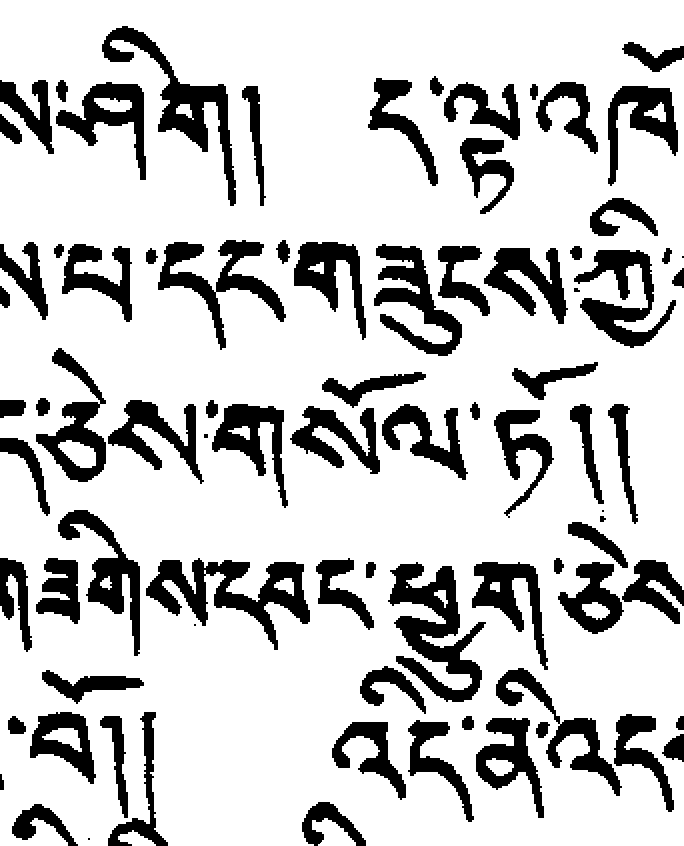 ས་ཤིག། ད་ལྟ་འཁོ
ས་པ་དང་གཟུངས་ཀྱི་
ད་ཅེས་གསོལ་ཏོ།།
གཟིགས་དབང་ཕྱུག་ཅེས
་བོ།། འདི་ནི་འད